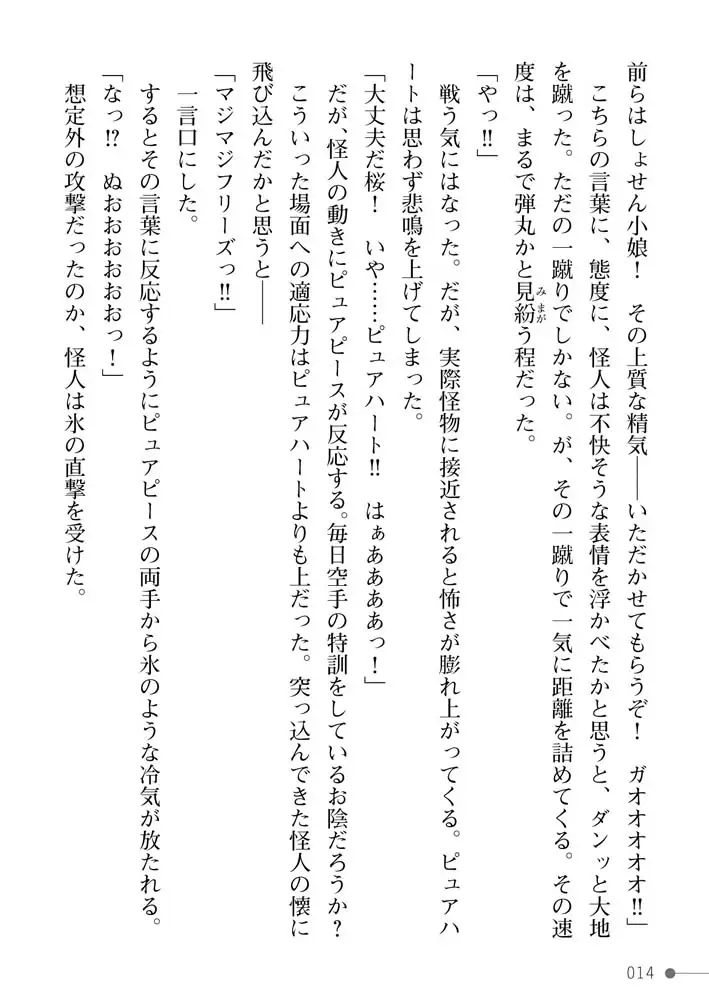 前らはしょせん小娘！　その上質な精気――いただかせてもらうぞ！　ガオオオオオ!!」
　こちらの言葉に、態度に、怪人は不快そうな表情を浮かべたかと思うと、ダンッと大地
を蹴った。ただの一蹴りでしかない。が、その一蹴りで一気に距離を詰めてくる。その速
度は、まるで弾丸かと見紛う程だった。
みまが
「やっ!!」
　戦う気にはなった。だが、実際怪物に接近されると怖さが膨れ上がってくる。ピュアハ
ートは思わず悲鳴を上げてしまった。
「大丈夫だ桜！　いや……ピュアハート!!　はぁああああっ！」
　だが、怪人の動きにピュアピースが反応する。毎日空手の特訓をしているお陰だろうか？
　こういった場面への適応力はピュアハートよりも上だった。突っ込んできた怪人の懐に
飛び込んだかと思うと――
「マジマジフリーズっ!!」
　一言口にした。
　するとその言葉に反応するようにピュアピースの両手から氷のような冷気が放たれる。
「なっ!?　ぬおおおおおおっ！」
　想定外の攻撃だったのか、怪人は氷の直撃を受けた。
014